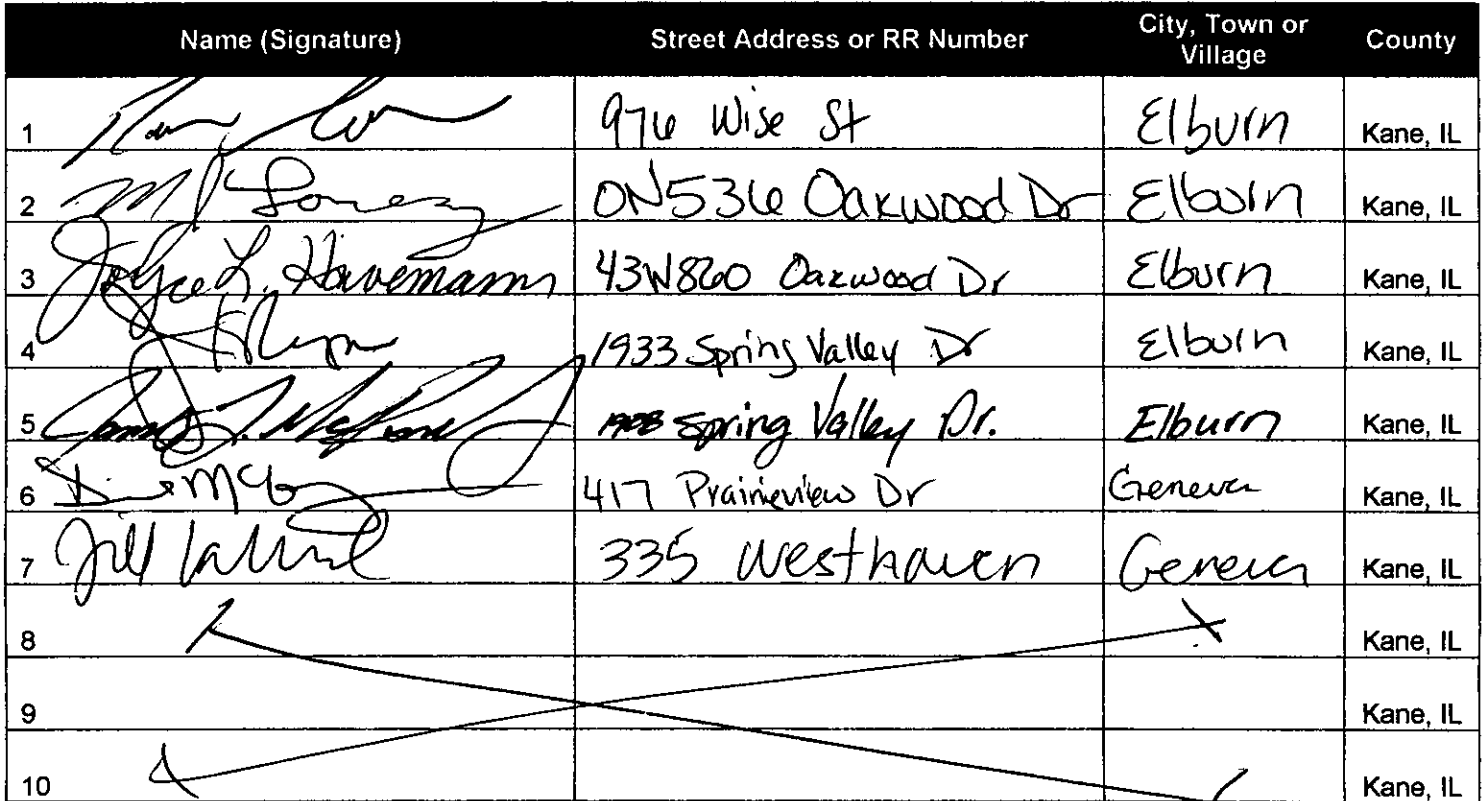 Name (Signature) Street Address or RR Number City, Town or Village County
1 976 Wise St Elburn Kane, IL
2 0N536 Oakwood Dr Elburn Kane, IL
3 Joyce L. Havemann 43W860 Oakwood Dr Elburn Kane, IL
4 1933 Spring Valley Dr Elburn Kane, IL
5 James Spring Valley Dr. Elburn Kane, IL
6 417 Prairieview Dr Geneva Kane, IL
7 Jill 335 Westhaven Geneva Kane, IL
8 Kane, IL
9 Kane, IL
10 Kane, IL